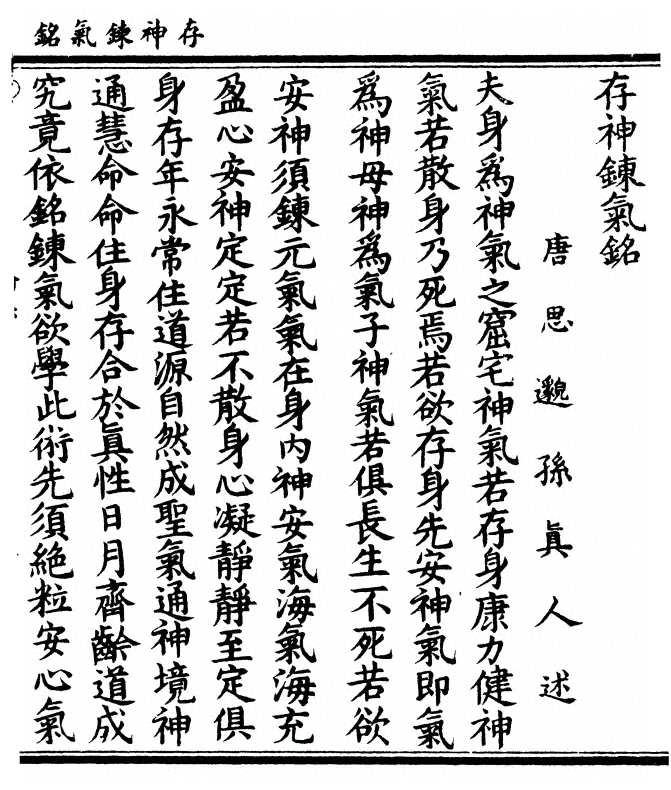 存神鍊氣銘
存神鍊氣銘
唐思邈孫眞人述
夫身爲神氣之窟宅神氣若存身康力健神
氣若散身乃死焉若欲存身先安神氣即氣
爲神母神爲氣子神氣若俱長生不死若欲
安神須鍊元氣氣在身内神安氣海氣海充
盈心安神定定若不散身心凝靜靜至定俱
身存年永常住道源自然成聖氣通神境神
通慧命命住身存合於眞性日月齊齡道成
究竟依銘鍊氣欲學此術先須絶粒安心氣